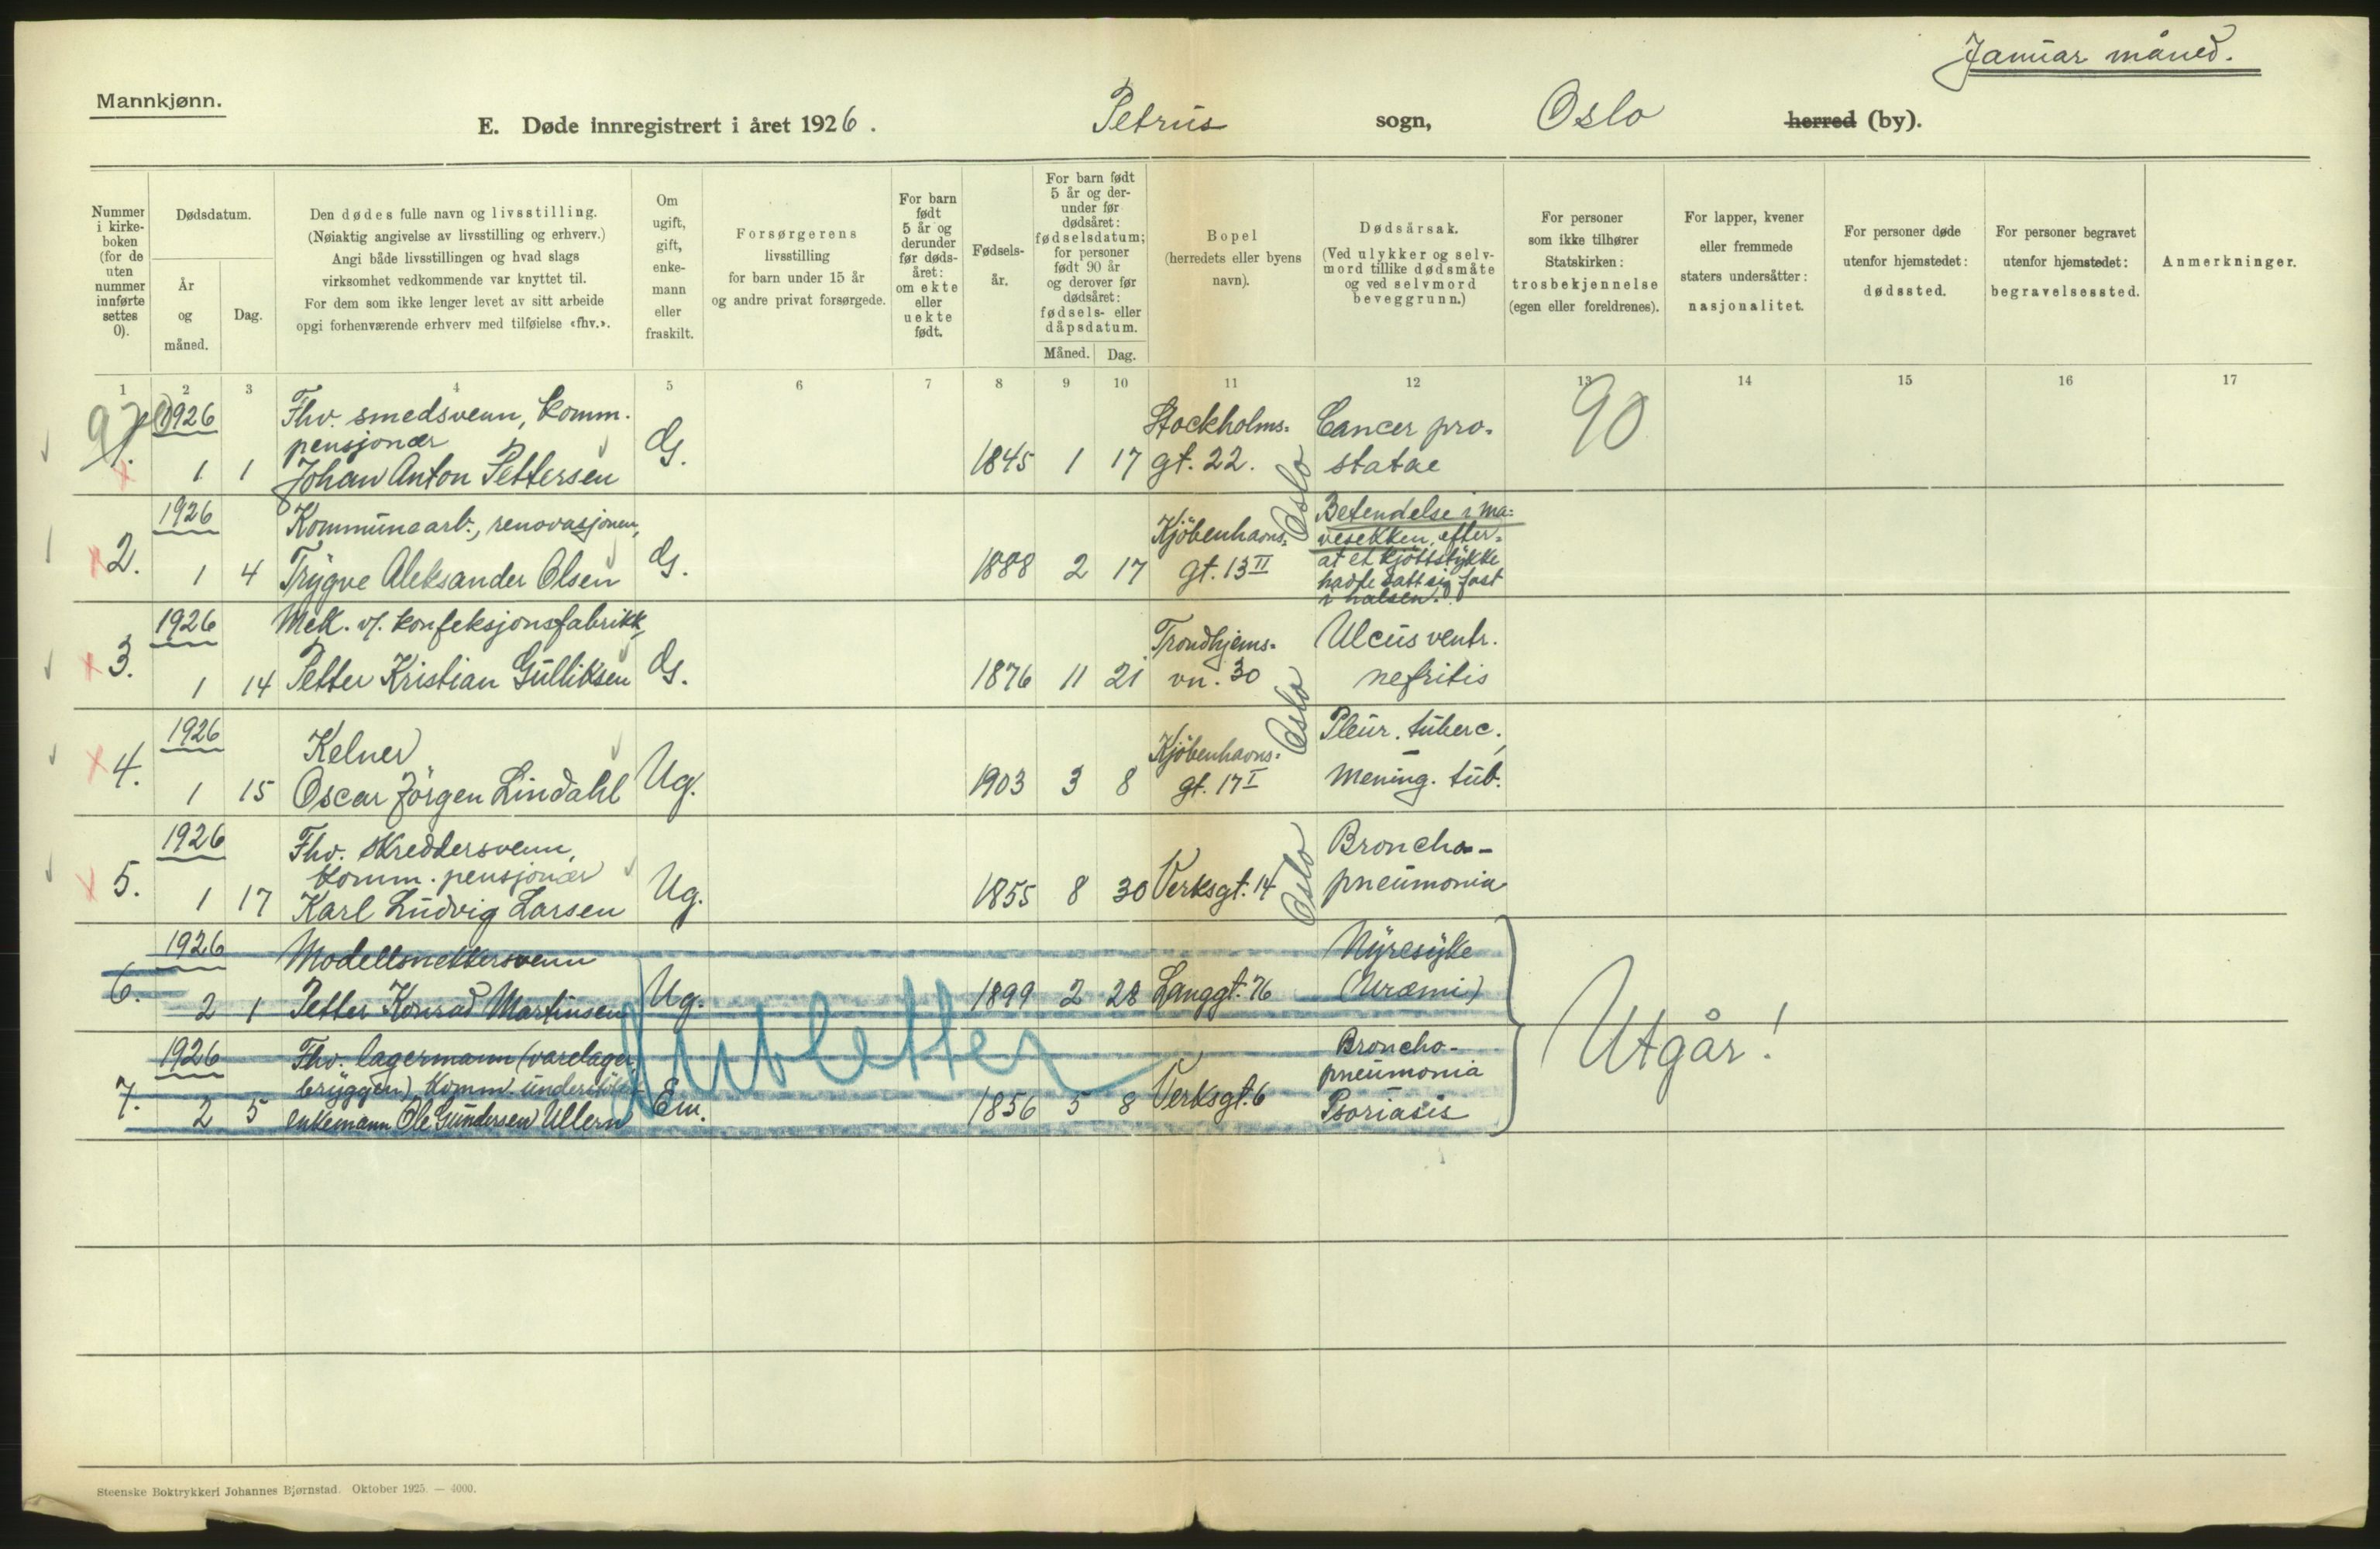 Januar måned.
Mannkjønn.
E. Døde innregistrert i året 1926. Petrus sogn, Oslo herred (by).
Nummer i kirke-boken (for de uten nummer innførte settes 0).
Dødsdatum.
År og måned.
Dag.
Den dødes fulle navn og livsstilling.
(Nøiaktig angivelse av livsstilling og erhverv.)
Angi både livsstillingen og hvad slags
virksomhet vedkommende var knyttet til.
For dem som ikke lenger levet av sitt arbeide
opgi forhenværende erhverv med tilføielse «fhv.».
Om ugift, gift, enke-mann eller fraskilt.
Forsørgerens
livsstilling
for barn under 15 år
og andre privat forsørgede.
For barn født 5 år og derunder før døds-året: om ekte eller uekte født.
Fødsels-år.
For barn født 5 år og der-under før dødsåret: fødselsdatum; for personer født 90 år og derover før dødsåret: fødsels- eller dåpsdatum.
Måned. Dag.
Bopel
(herredets eller byens
navn).
Dødsårsak.
(Ved ulykker og selv-
mord tillike dødsmåte
og ved selvmord
beveggrunn.)
For personer
som ikke tilhører
Statskirken:
trosbekjennelse
(egen eller foreldrenes).
For lapper, kvener
eller fremmede
staters undersåtter:
nasjonalitet.
For personer døde
utenfor hjemstedet:
dødssted.
For personer begravet
utenfor hjemstedet:
begravelsessted.
Anmerkninger.
1 2 3 4 5 6 7 8 9 10 11 12 13 14 15 16 17
1926 Fhv. smedsvenn, komm. Stockholms= Cancer pro- 90
pensjonær
1. 1 1 Johan Anton Pettersen G. 1845 1 17 gt. 22. statae
Oslo
1926 Kommunearb., renovasjonen, Kjöbenhavns= Betendelse i ma=
vesekken, efter=
2. 1 4 Trygve Aleksander Olsen G. 1888 2 17 gt. 13 II at et kjöttstykke
hadde satt sig fast
i halsen.
1926 Mek. v/. konfeksjonsfabrikk, Trondhjems- Ulcus ventr.
3. 1 14 Petter Kristian Gulliksen G. 1876 11 21 vn. 30 nefritis
Oslo
1926 Kelner Kjöbenhavns= Pleur. tuberc.,
4. 1 15 Oscar Jörgen Lindahl Ug. 1903 3 8 gt. 17 I Mening. tub.
1926 Fhv. skreddersvenn, Broncho-
komm. pensjonær
5. 1 17 Karl Ludvig Larsen Ug. 1855 8 30 Verksgt. 14 pneumonia
Oslo
1926 Modellsnekkersvenn Nyresyke
6. 2 1 Petter Konrad Martinsen Ug. 1899 2 28 Langgt. 76 (Uræmi)
Dubletter
Utgår!
1926 Fhv. lagermann (varelager Broncho-
bryggen), komm. understöttet pneumonia
7. 2 5 enkemann Ole Gundersen Ullern Em. 1856 5 8 Verksgt. 6 Psoriasis
Steenske Boktrykkeri Johannes Bjørnstad. Oktober 1925. — 4000.